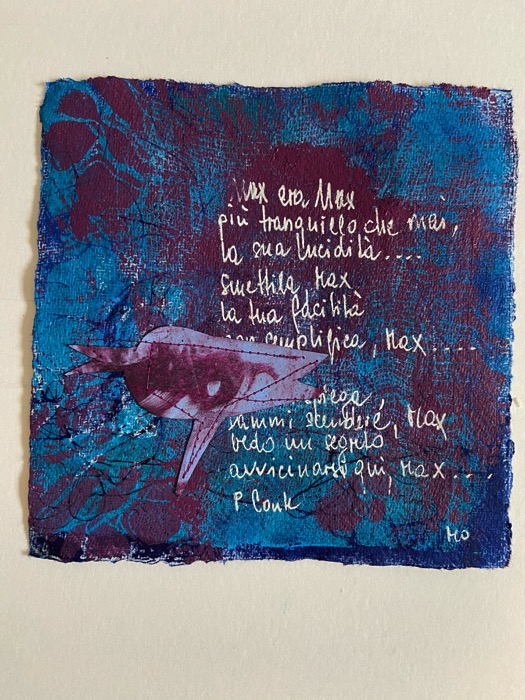 Max era Max
più tranquillo che mai,
la sua lucidità....
smettila, Max
la tua facilità
semplifica, Max....
spiega,
fammi scendere, Max
vedo un segreto
avvicinarsi qui, Max...
P. Conte
MO